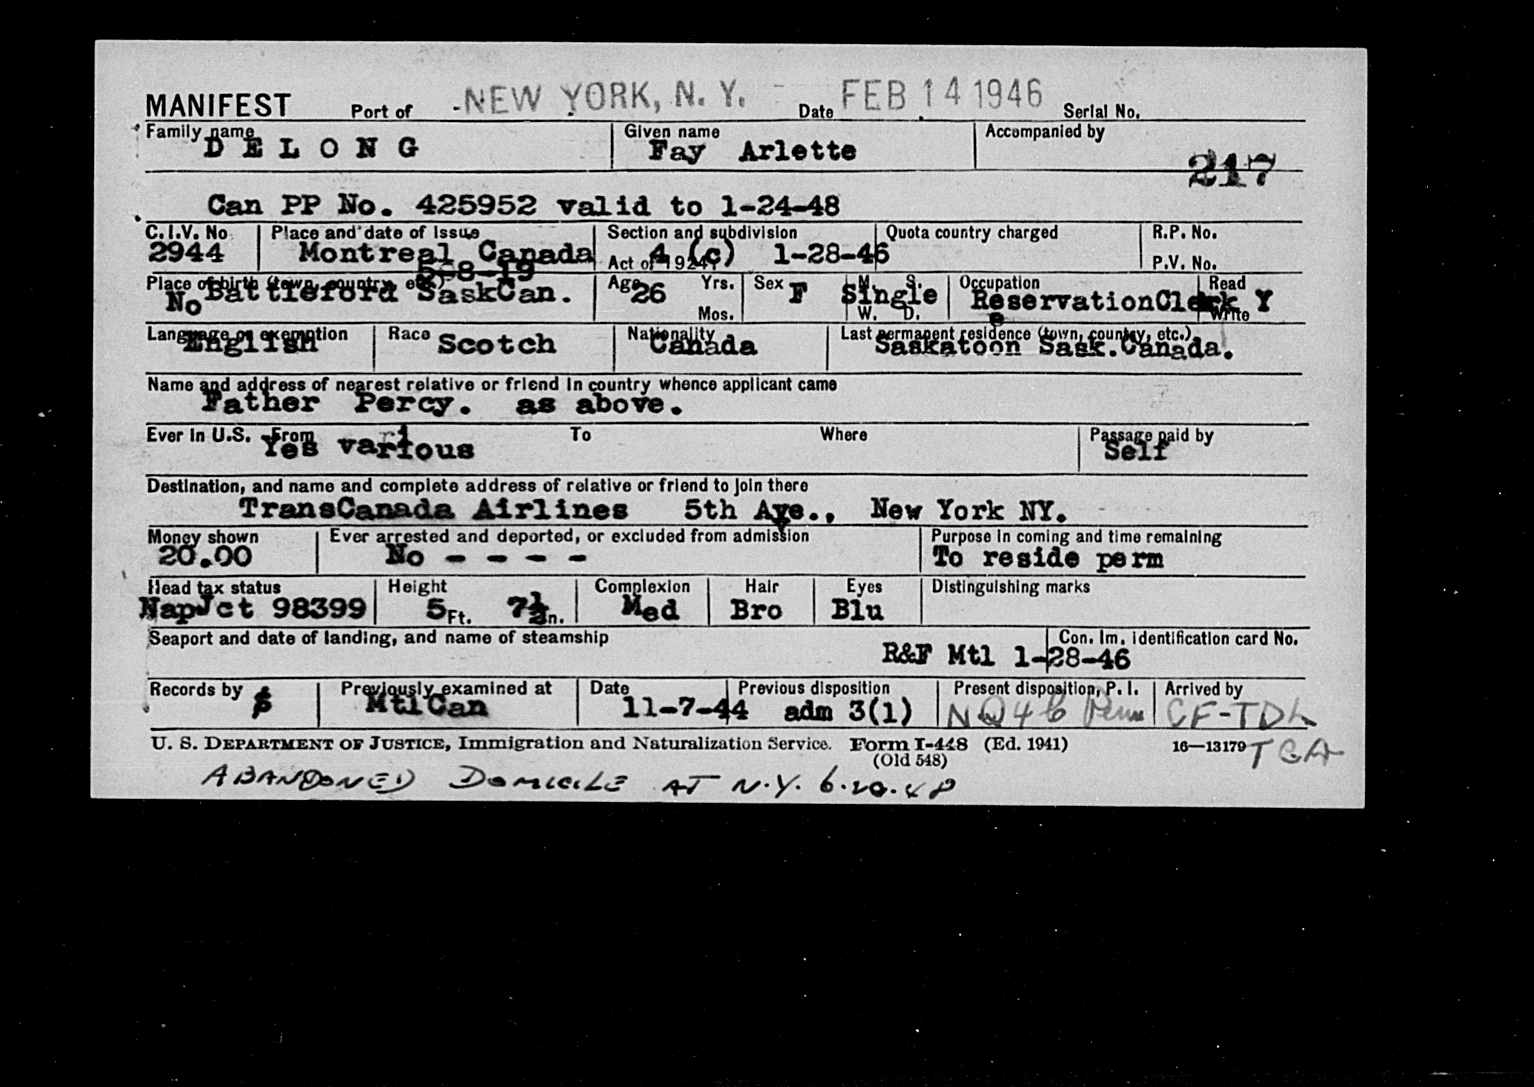 MANIFEST Port of NEW YORK, N. Y. Date FEB 14 1946 Serial No.
Family name DELONG Given name Fay Arlette Accompanied by
217
Can PP No. 425952 valid to 1-24-48
C.I.V. No. Place and date of issue Section and subdivision Quota country charged R.P. No.
2944 Montreal Canada Act of 1924. 4 (c) 1-28-46 P.V. No.
5-8-19
Place of birth (town, country, etc.) Age Yrs. Sex M. S. Occupation Read
No Battleford SaskCan. 26 Mos. F Single W. D. ReservationClerk Write Y
Language or exemption Race Nationality Last permanent residence (town, country, etc.)
English Scotch Canada Saskatoon Sask.Canada.
Name and address of nearest relative or friend in country whence applicant came
Father Percy. as above.
Ever in U.S. From To Where Passage paid by
Yes various Self
Destination, and name and complete address of relative or friend to join there
TransCanada Airlines 5th Ave., New York NY.
Money shown Ever arrested and deported, or excluded from admission Purpose in coming and time remaining
20.00 No - - - - To reside perm
Head tax status Height Complexion Hair Eyes Distinguishing marks
NapJct 98399 5 Ft. 7½ In. Med Bro Blu
Seaport and date of landing, and name of steamship Con. Im. identification card No.
R&F Mtl 1-28-46
Records by Previously examined at Date Previous disposition Present disposition, P. I. Arrived by
MtlCan 11-7-44 adm 3(1) NQ4c Perm CF-TDL
U. S. DEPARTMENT OF JUSTICE, Immigration and Naturalization Service. Form I-448 (Ed. 1941) 16—13179 TCA
(Old 548)
ABANDONED DOMICILE AT N.Y. 6.20.48